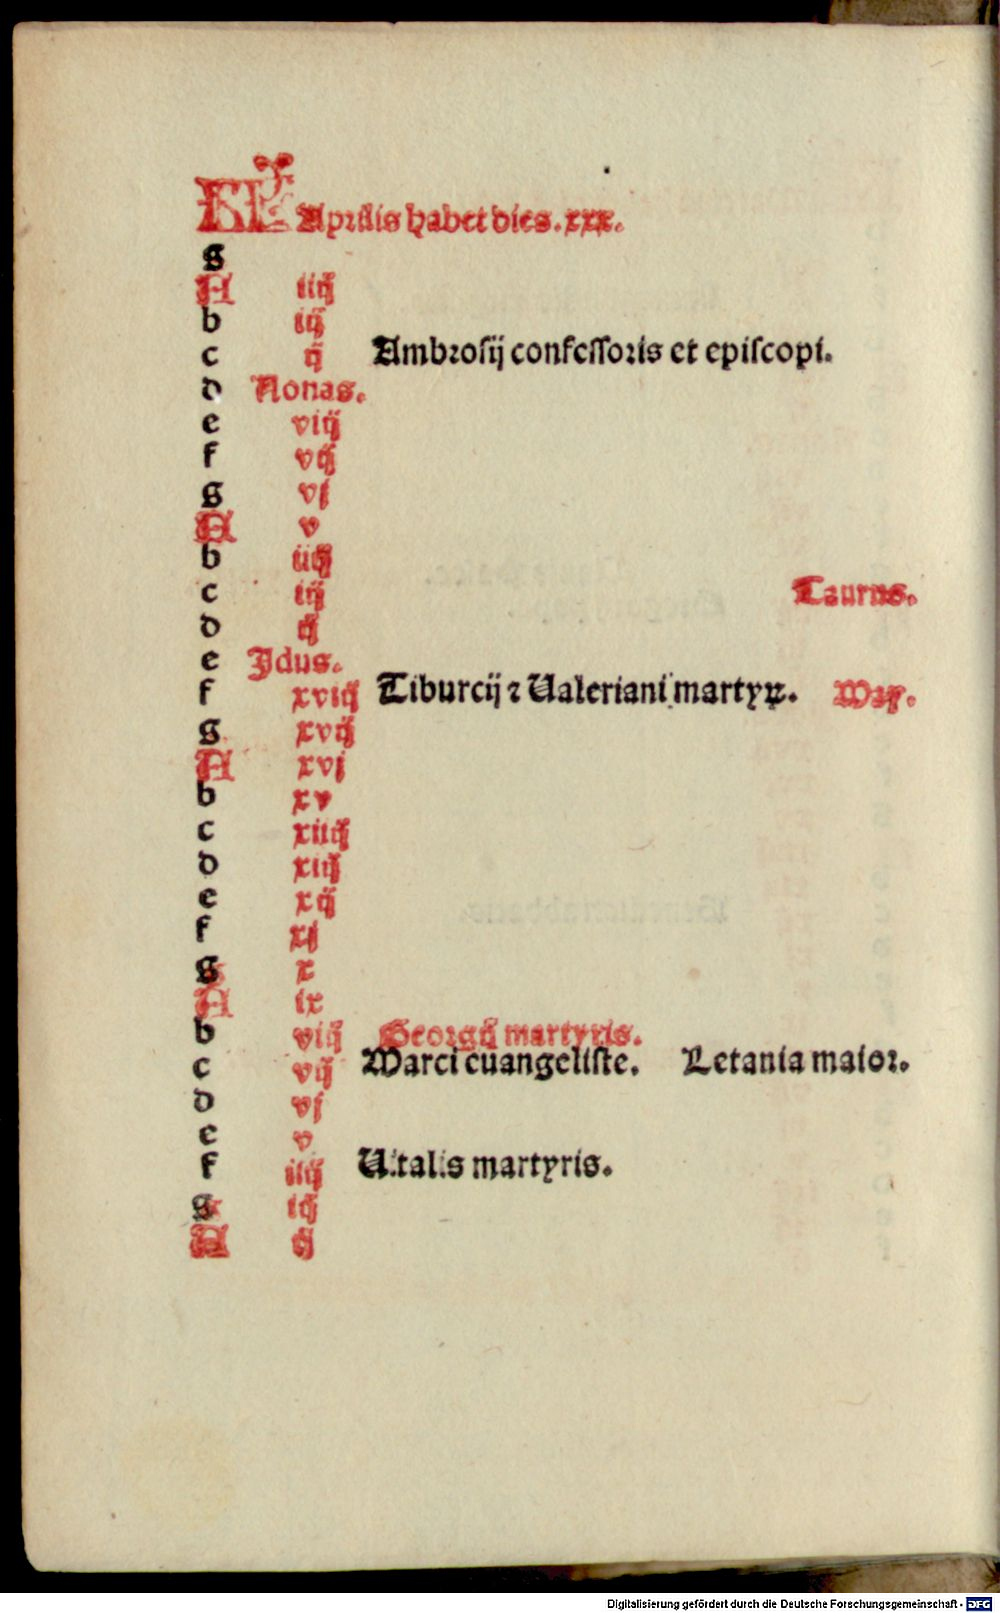 KL Aprilis habet dies. xxx.
g
A iiij
b iij
c ij Ambrosij confessoris et episcopi.
d Nonas.
e viij
f vij
g vj
A v
b iiij
c iij Taurus.
d ij
e Jdus.
f xviij Tiburcij ⁊ Ualeriani martyꝝ. May.
g xvij
A xvj
b xv
c xiiij
d xiij
e xij
f xj
g x
A ix
b viij Georgij martyris.
c vij Marci euangeliste. Letania maior.
d vj
e v
f iiij Uitalis martyris.
g iij
A ij
Digitalisierung gefördert durch die Deutsche Forschungsgemeinschaft - DFG